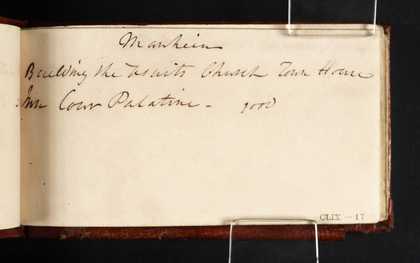 Manheim
Building the Jesuits Church Town House
Inn Cour Palatine - good
CLIX - 17